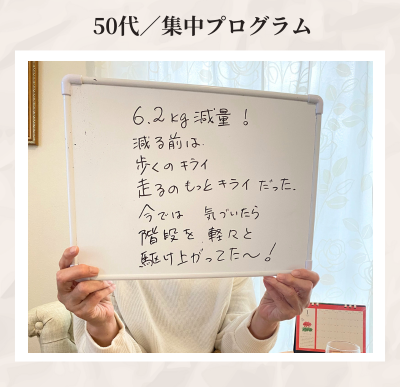 50代／集中プログラム
6.2kg減量！
減る前は、
歩くのキライ
走るのもっとキライだった。
今では 気づいたら
階段を軽々と
駆け上がってた〜！